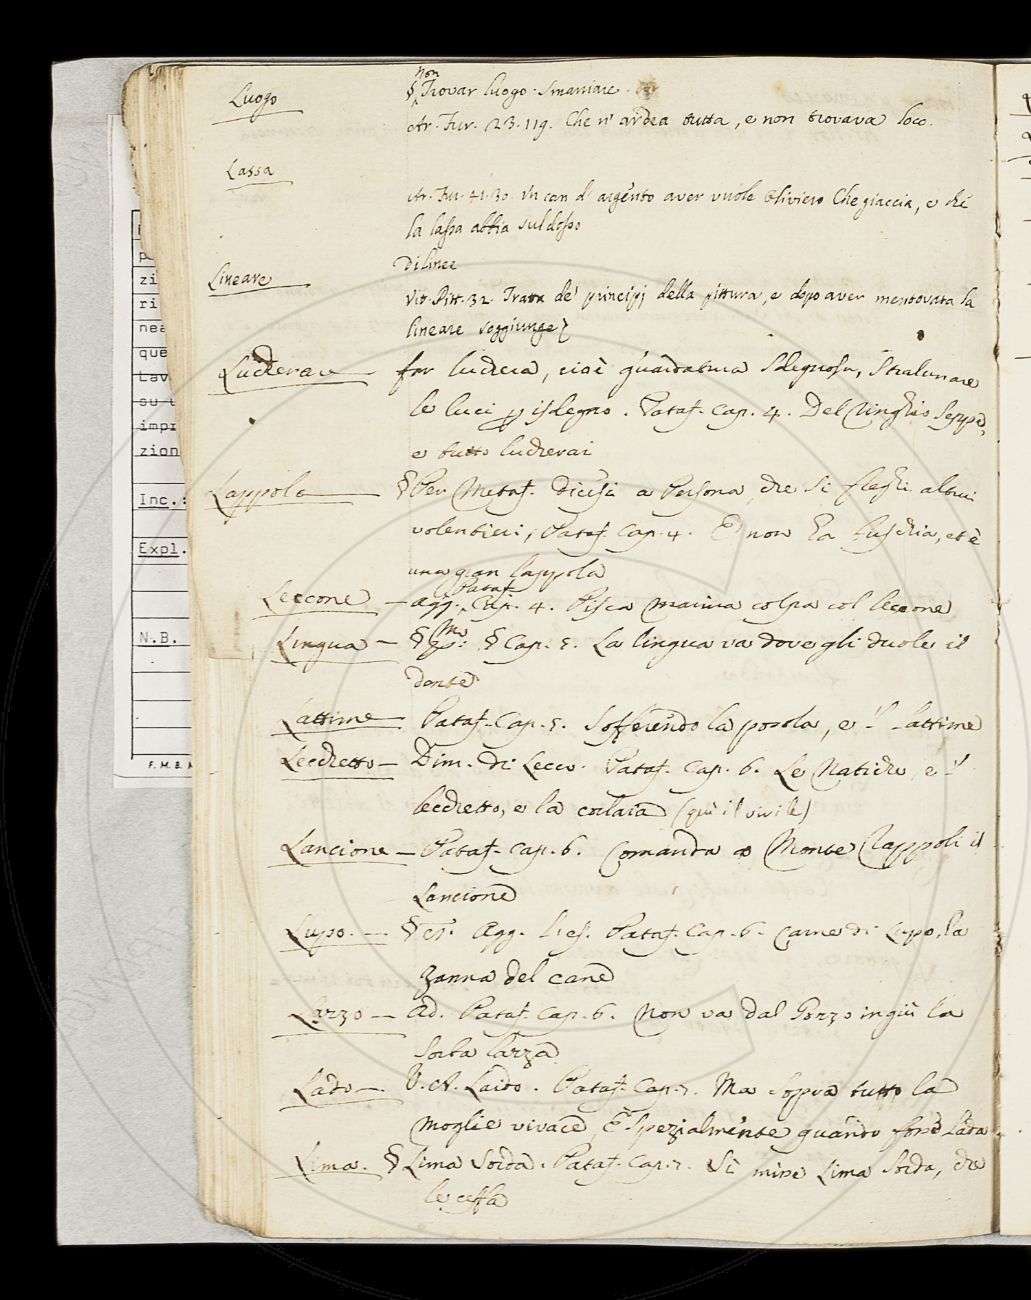 Luogo
non
§ Trovar luogo. Smaniare.
Ar. Fur. 23. 119. Che n'ardea tutta, e non trovava loco.
Lassa
Ar. Fur. 41. 30. Un can d'argento aver vuole Oliviero Che giaccia, e che
la lassa abbia sul dosso
Lineare
Di linee
Vit. Pitt. 32. Tratta de' principj della pittura, e dopo aver mentovata la
lineare soggiunge
Lucherare far luchera, cioè guardatura sdegnosa, stralunare
le luci p isdegno. Pataf. Cap. 4. Del Ringhio
e tutto lucherai
Lappola § Per Metaf. dicesi a Persona, che si ficchi altrui
volentieri; Pataf. Cap. 4. E non ha, et è
una gran lappola
Leccone - Agg. Pataf. Cap. 4. Pisca marina colpa col leccone
Lingua - § § Cap. 5. La lingua va dove gli duole il
dente
Lattime Pataf. Cap. 5. Sofferendo la posola, e 'l lattime
Lecchetto - Dim. di Lecco. Pataf. Cap. 6. Le Natiche, e 'l
lecchetto, e la (qui il vivile)
Lancione - Pataf. Cap. 6. Comanda a Monte Rappoli il
Lancione
Lupo. - § Agg. Pataf. Cap. 6. Carne di Lupo, la
zanna del cane
Larzo - Ad. Pataf. Cap. 6. Non va dal Gorzo ingiù la
Sorba larza
Lado -. V. A. Laido. Pataf. Cap. 7. Ma sopra tutto la
moglie vivace E spezialmente quando fosse Lada
Lima. § Lima Sorda. Pataf. Cap. 7. Si mise Lima Sorda, che
le ceffa
zi
ri
nea
que
Lav
su
impr
zion
Inc.:
Expl.
N.B.
F. M. B.